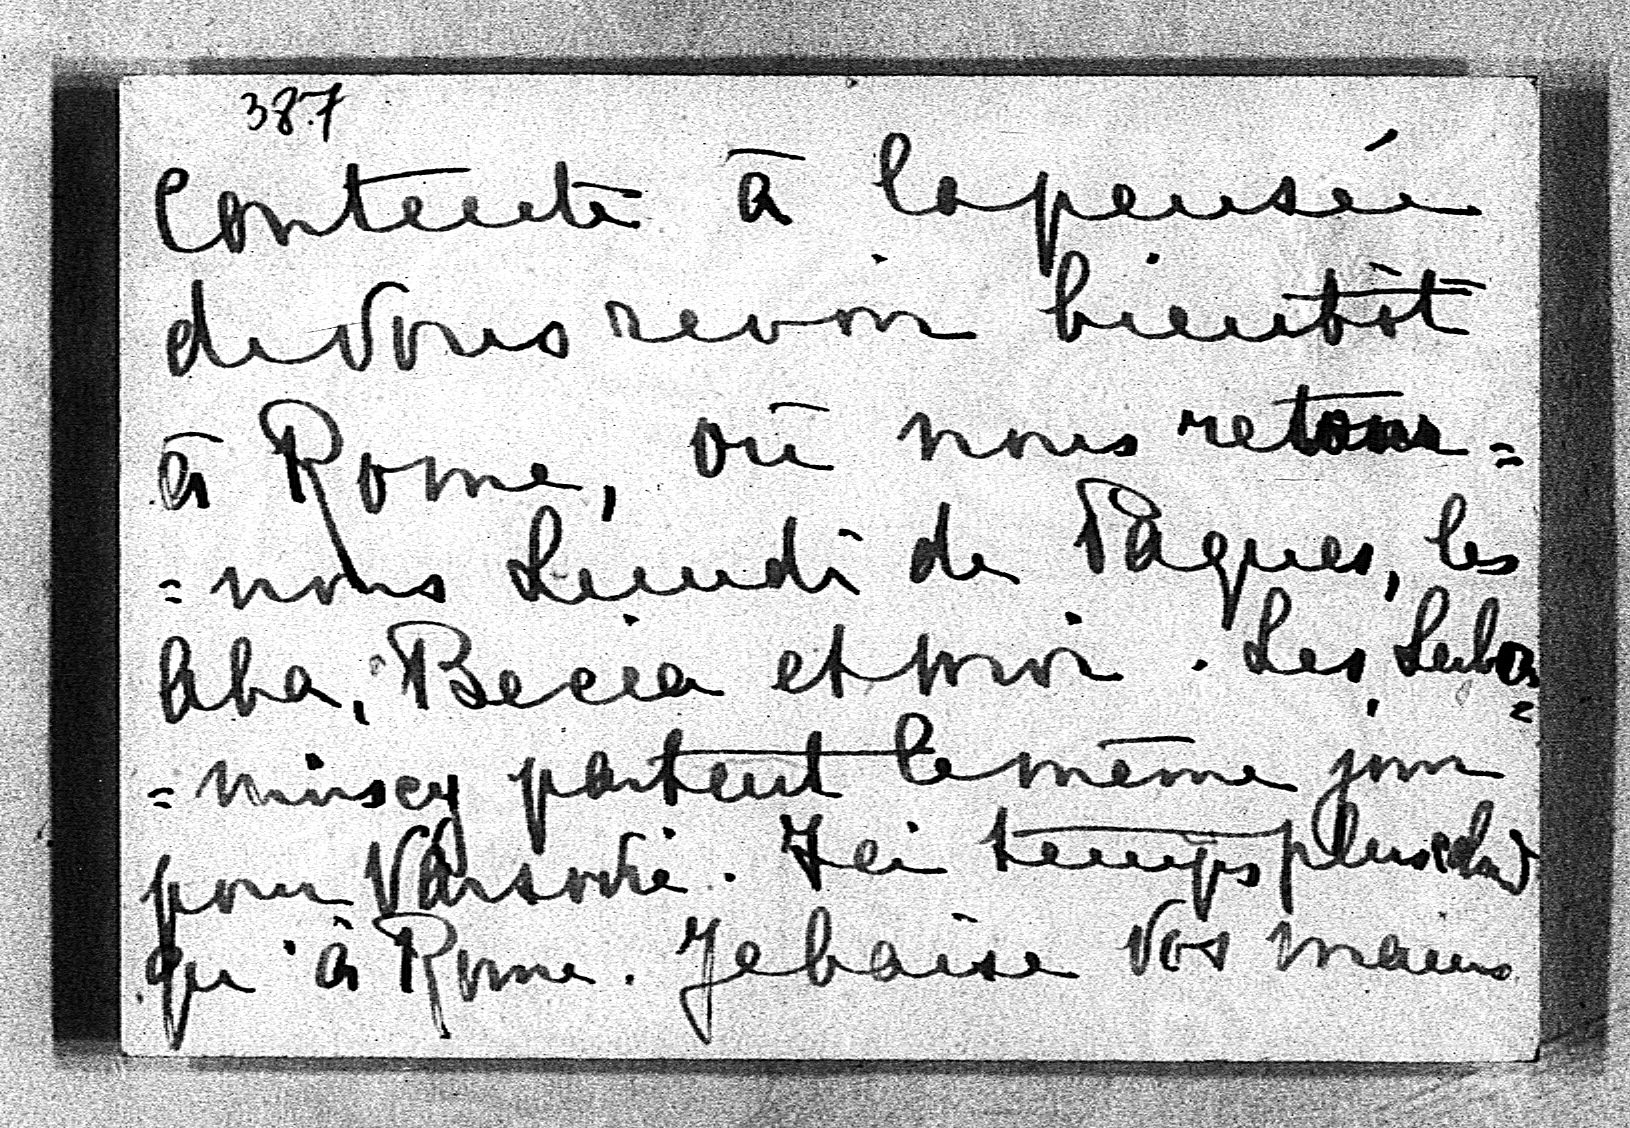 387
Contente à la pensée
de Vous revoir bientôt
à Rome, où nous retour=
=nons Lundi de Pâques, les
Aba, Becia et moi. Les Lubo=
=mirscy partent le même jour
pour Varsovie. Ici temps plus chaud
qu'à Rome. Je baise Vos mains